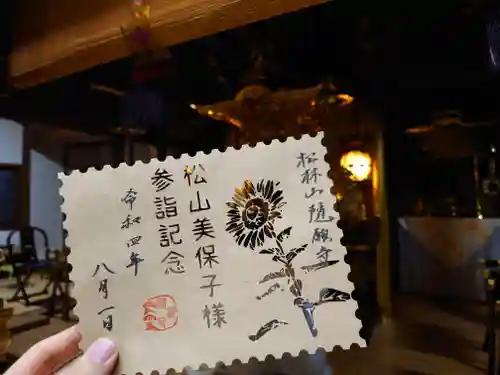 松林山随願寺
松山美保子様
参詣記念
令和四年
八月一日